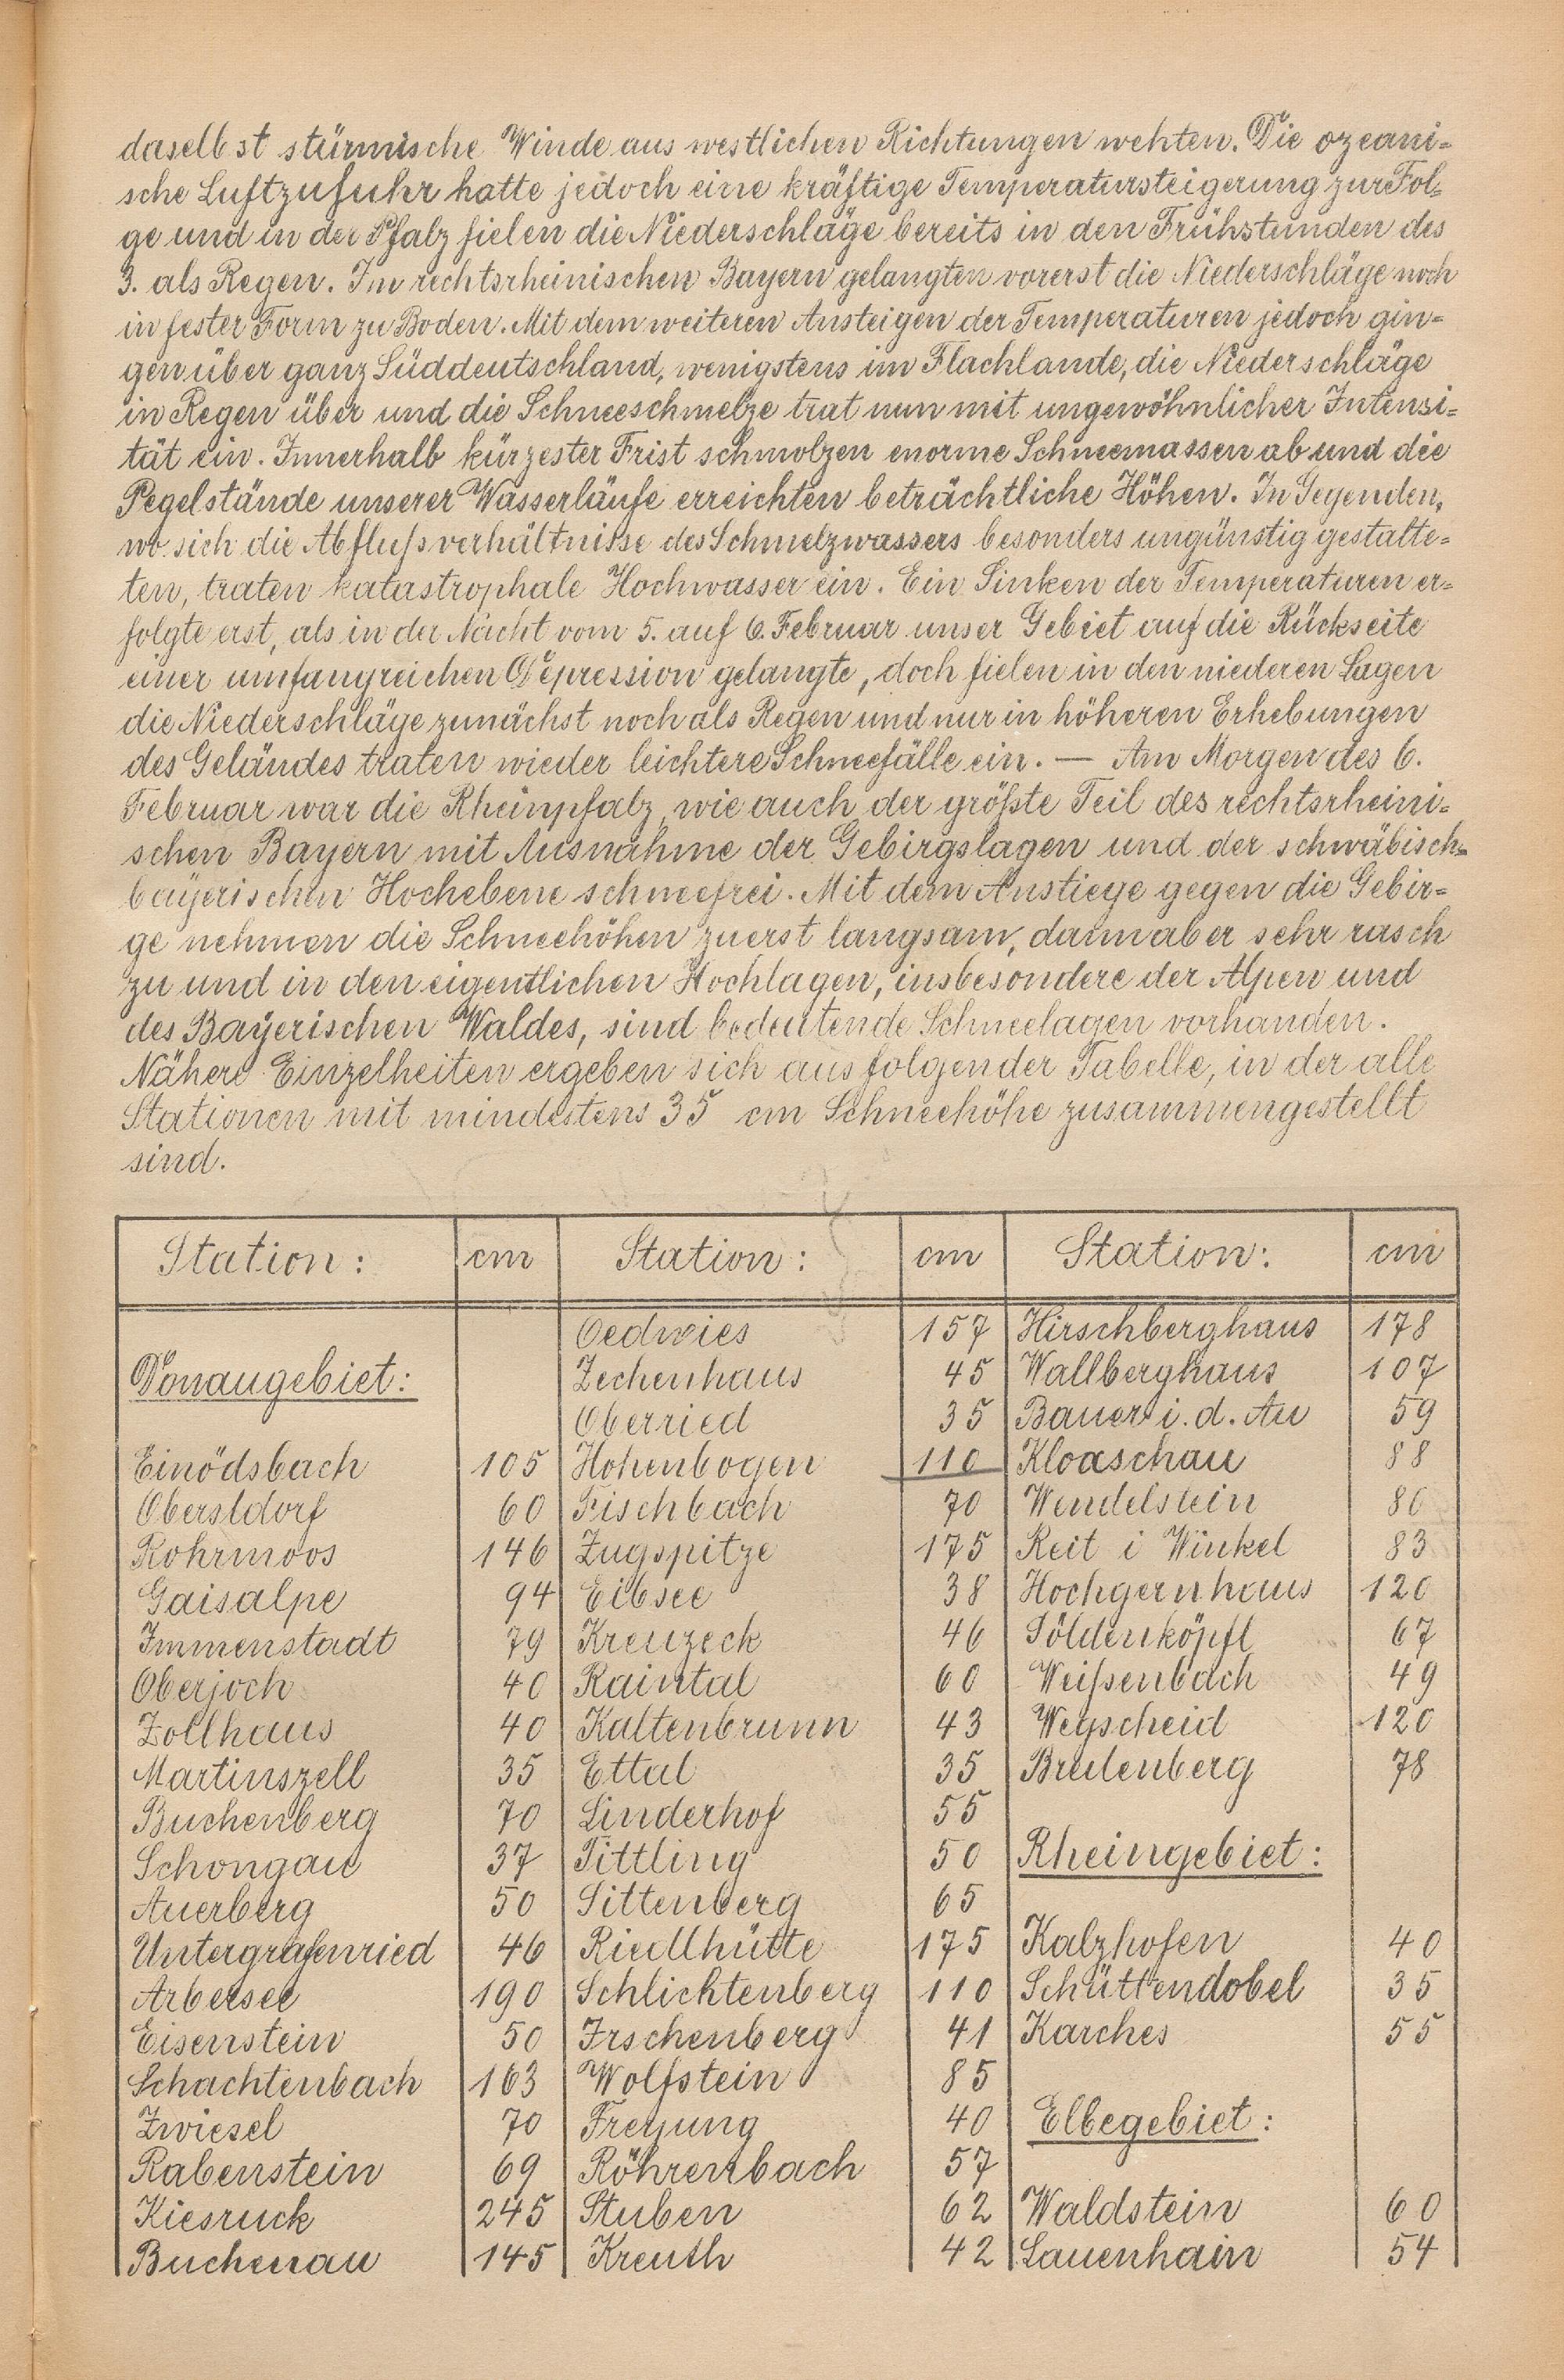 daselbst stürmische Winde aus westlichen Richtungen wehten. Die ozeani=
sche Luftzufuhr hatte jedoch eine kräftige Temperatursteigerung zur Fol=
ge und in der Pfalz fielen die Niederschläge bereits in den Frühstunden des
3. als Regen. Im rechtsrheinischen Bayern gelangten vorerst die Niederschläge noch
in fester Form zu Boden. Mit dem weiteren Ansteigen der Temperaturen jedoch gin=
gen über ganz Süddeutschland, wenigstens im Flachlande, die Niederschläge
in Regen über und die Schneeschmelze trat nun mit ungewöhnlicher Intensi=
tät ein. Innerhalb kürzester Frist schmolzen enorme Schneemassen ab und die
Pegelstände unserer Wasserläufe erreichten beträchtliche Höhen. In Gegenden,
wo sich die Abflußverhältnisse des Schmelzwassers besonders ungünstig gestalte=
ten, traten katastrophale Hochwasser ein. Ein Sinken der Temperaturen er=
folgte erst, als in der Nacht vom 5. auf 6. Februar unser Gebiet auf die Rückseite
einer umfangreichen Depression gelangte, doch fielen in den niederen Lagen
die Niederschläge zunächst noch als Regen und nur in höheren Erhebungen
des Geländes traten wieder leichtere Schneefälle ein. — Am Morgen des 6.
Februar war die Rheinpfalz, wie auch der größte Teil des rechtsrheini=
schen Bayern mit Ausnahme der Gebirgslagen und der schwäbisch=
bayerischen Hochebene schneefrei. Mit dem Anstiege gegen die Gebir=
ge nehmen die Schneehöhen zuerst langsam, dann aber sehr rasch
zu und in den eigentlichen Hochlagen, insbesondere der Alpen und
des Bayerischen Waldes, sind bedeutende Schneelagen vorhanden.
Nähere Einzelheiten ergeben sich aus folgender Tabelle, in der alle
Stationen mit mindestens 35 cm Schneehöhe zusammengestellt
sind.
Station: cm Station: cm Station: cm
Oedwies 157 Hirschberghaus 178
Donaugebiet: Zechenhaus 45 Wallberghaus 107
Oberried 35 Bauer i. d. Au 59
Einödsbach 105 Hohenbogen 110 Kloaschau 88
Oberstdorf 60 Fischbach 70 Wendelstein 80
Rohrmoos 146 Zugspitze 175 Reit i Winkel 83
Gaisalpe 94 Eibsee 38 Hochgernhaus 120
Immenstadt 79 Kreuzeck 46 Söldenköpfl 67
Oberjoch 40 Raintal 60 Weißenbach 49
Zollhaus 40 Kaltenbrunn 43 Wegscheid 120
Martinszell 35 Ettal 35 Breitenberg 78
Buchenberg 70 Linderhof 55
Schongau 37 Tittling 50 Rheingebiet:
Auerberg 50 Sittenberg 65
Untergrafenried 46 Riedlhütte 175 Kalzhofen 40
Arbersee 190 Schlichtenberg 110 Schüttendobel 35
Eisenstein 50 Irschenberg 41 Karches 55
Schachtenbach 163 Wolfstein 85
Zwiesel 70 Freyung 40 Elbegebiet:
Rabenstein 69 Röhrenbach 57
Kiesruck 245 Stuben 62 Waldstein 60
Buchenau 145 Kreuth 42 Lauenhain 54